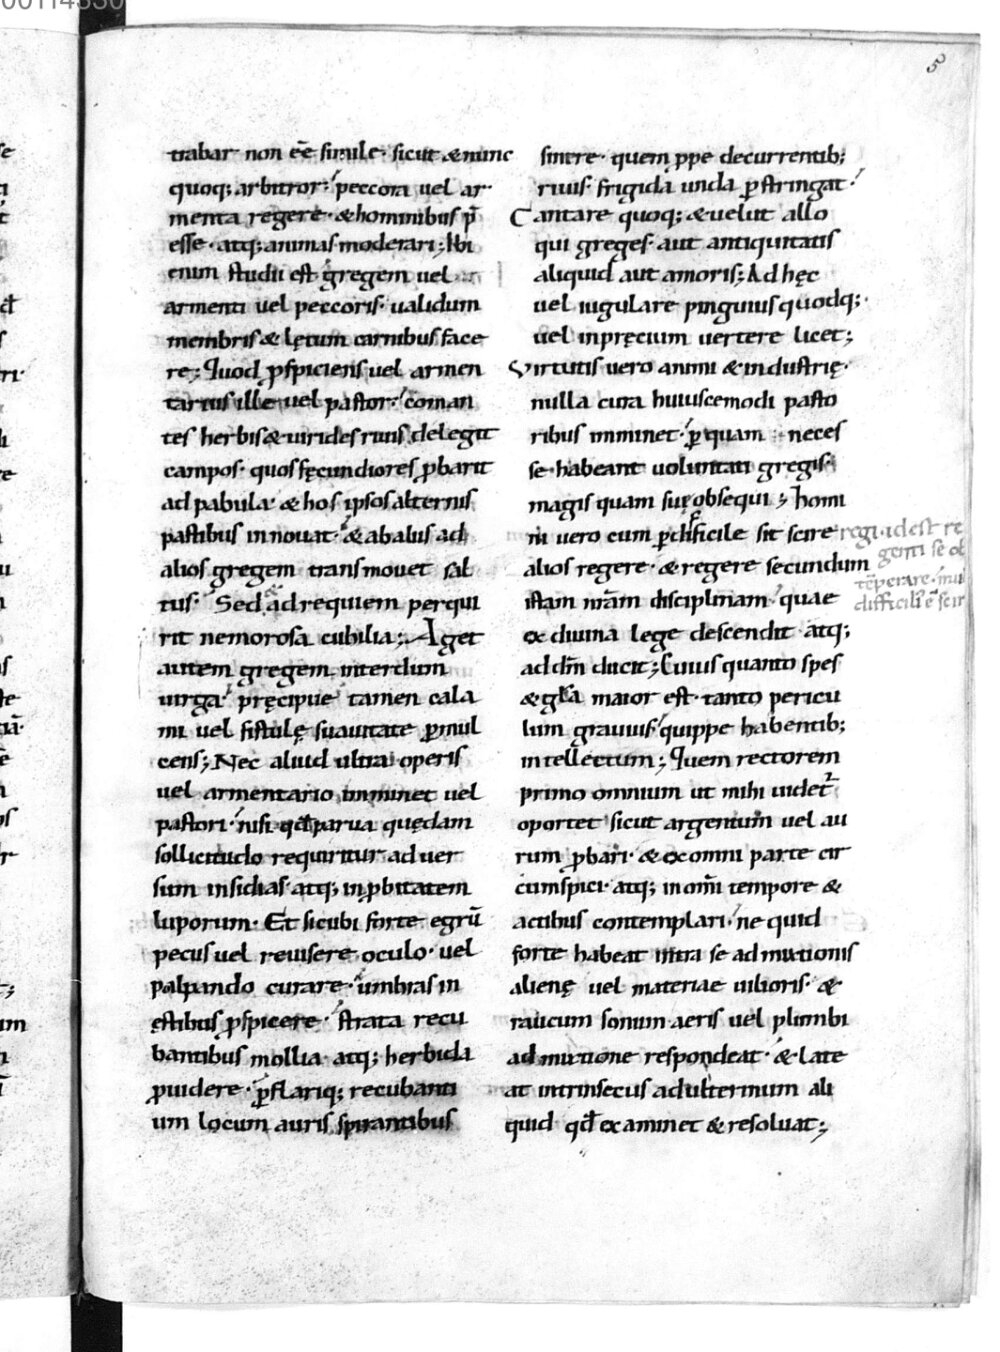 trabar non eē simile· sicut & nunc
quoq; arbitror· peccora uel ar
menta regere· & hominibus p̄
esse· atq; animas moderari; Ibi
enim studii est gregem uel
armenti uel peccoris· ualidum
membris & lętum carnibus face
re; Quod ꝓspiciens uel armen
tarius ille uel pastor· coman
tes herbis & uirides riuis delegit
campos· quos fęcundiores ꝓbarit
ad pabula· & hos ipsos alternis
pastibus innouat· & ab aliis ad
alios gregem transmouet sal
tus· Sed & ad requiem perqui
rit nemorosa cubilia; Aget
autem gregem interdum
uirga· pręcipue tamen cala
mi uel fistulę suauitate ꝑmul
cens; Nec aliud ultra operis
uel armentario imminet uel
pastori· nisi qđ parua quędam
sollicitudo requiritur aduer
sum insidias atq; inꝓbitatem
luporum· Et sicubi forte egrū
pecus uel reuisere oculo· uel
palpando curare· umbras in
ęstibus ꝓspicere· strata recu
bantibus mollia atq; herbida
ꝓuidere· ꝑflariq; recubanti
um locum auris spirantibus
sinere· quem ꝓpe decurrentib;
riuis frigida unda ꝑstringat·
Cantare quoq; & uelut allo
qui greges· aut antiquitatis
aliquid aut amoris; Ad hęc
uel iugulare pinguius quodq;·
uel in pręcium uertere licet;
Virtutis uero animi & industrię·
nulla cura huiuscemodi pasto
ribus imminet· ꝑ quam neces
se habeant uoluntati gregis·
magis quam suę obsequi; homi
ni uero cum ꝑdifficile sit scire
alios regere· & regere secundum
istam nr̄am disciplinam· quae
ex diuina lege descendit atq;
ad dm̄ ducit; Cuius quanto spes
& gl̄a maior est· tanto pericu
lum grauius· quippe habentib;
intellectum; Quem rectorem
primo omnium ut mihi uidet᷑
oportet sicut argentum uel au
rum ꝓbari· & ex omni parte cir
cumspici· atq; in om̄i tempore &
actibus contemplari· ne quid
forte habeat intra se admixtionis
alienę uel materiae uilioris· &
raucum sonum aeris uel plumbi
admixtione respondeat· & late
at intrinsecus adulterinum ali
quid qđ examinet & resoluat;
regi· id est re
genti se
tēperare· mul
difficil' ē scir
5